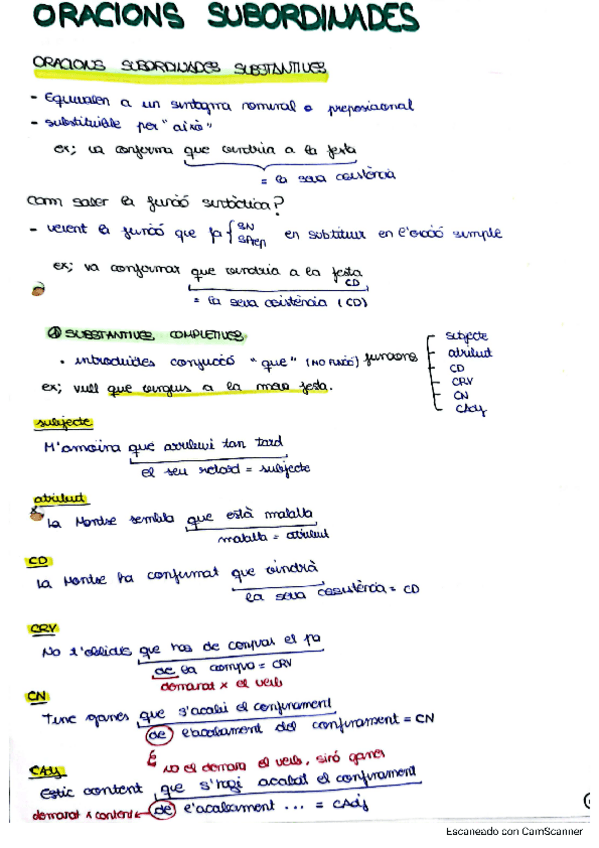 ORACIONS SUBORDINADES
ORACIONS SUBORDINADES SUBSTANTIVES
- Equivalen a un sintagma nominal o preposicional
- substituible per "això"
ex; va confirmar que vindria a la festa
= la seva assistència
Com saber la funció sintàctica?
- veient la funció que fa { SN en substituir en l'oració simple
SPrep
ex; va confirmar que vindria a la festa
CD
= la seva assistència (CD)
① SUBSTANTIVES COMPLETIVES
• introduïdes conjucció "que" (NO FUNCIÓ) funcions
subjecte
atribut
CD
CRV
CN
CAdj
ex; vull que vinguis a la meva festa.
subjecte
M'amoïna que arribeu tan tard
el seu retard = subjecte
atribut
La Montse sembla que està malalta
malalta = atribut
CD
La Montse ha confirmat que vindrà
la seva assistència = CD
CRV
No t'oblidis que has de comprar el pa
de la compra = CRV
demanat x el verb
CN
Tinc ganes que s'acabi el confinament
de l'acabament del confinament = CN
no el demana el verb, sinó ganes
CAdj
Estic content que s'hagi acabat el confinament
demanat x content ← de l'acabament ... = CAdj
Escaneado con CamScanner